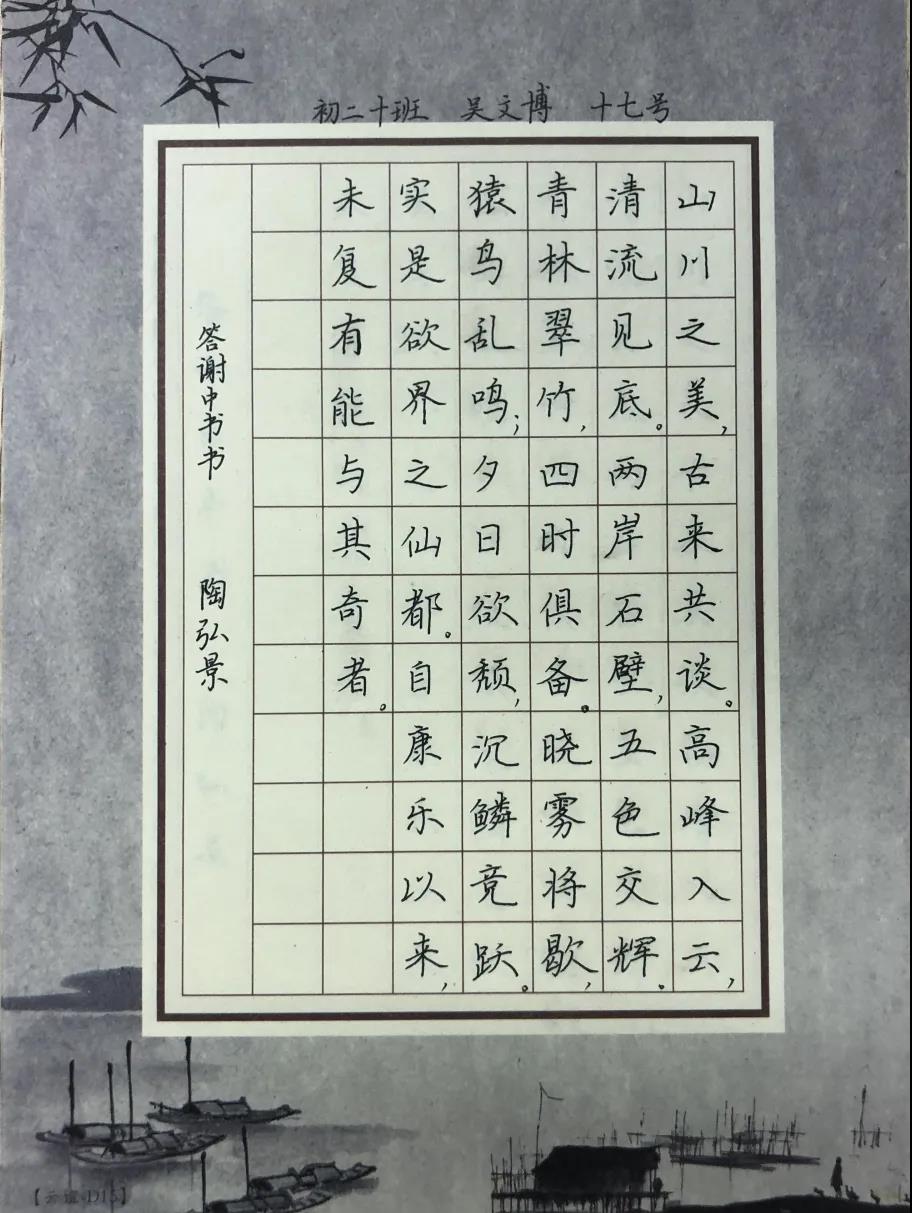 初二十班 吴文博 十七号
山川之美，古来共谈。高峰入云，
清流见底。两岸石壁，五色交辉。
青林翠竹，四时俱备。晓雾将歇，
猿鸟乱鸣；夕日欲颓，沉鳞竞跃。
实是欲界之仙都。自康乐以来，
未复有能与其奇者。
答谢中书书 陶弘景